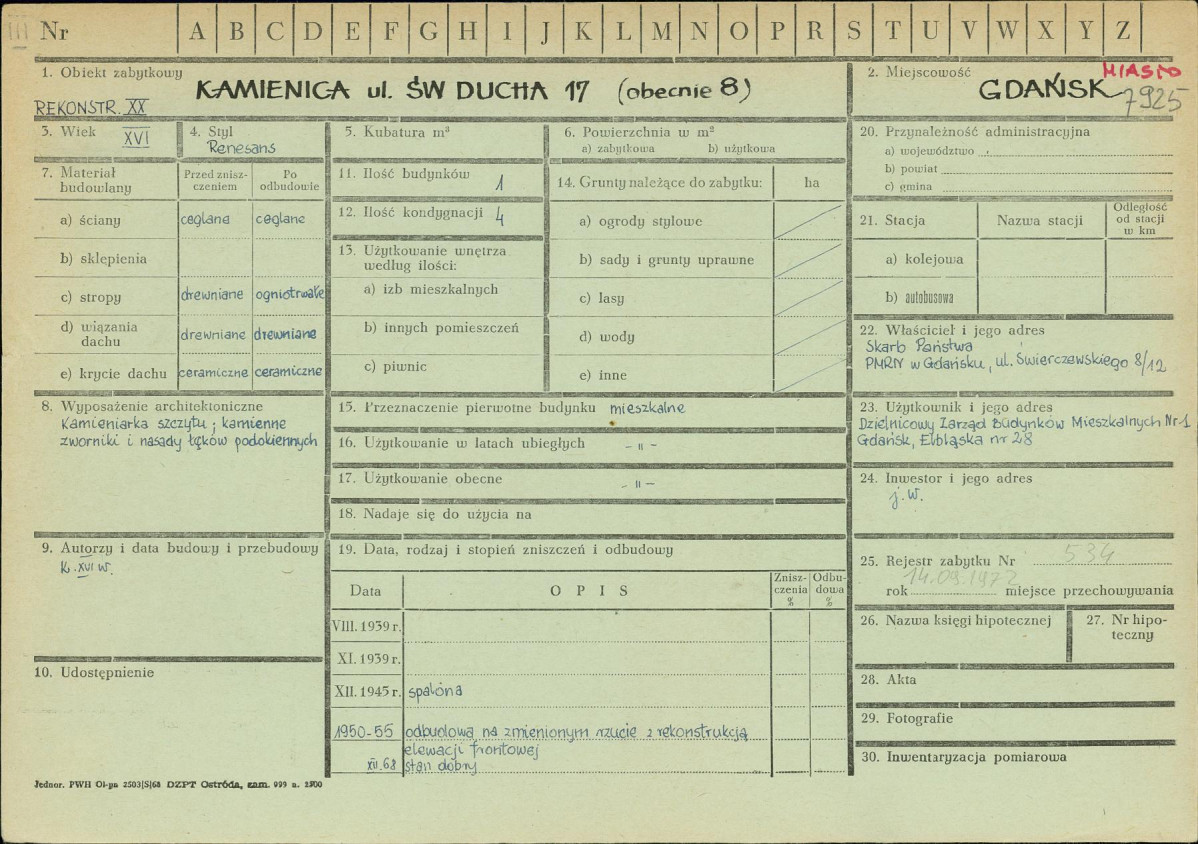 III Nr A B C D E F G H I J K L M N O P R S T U V W X Y Z
1. Obiekt zabytkowy
KAMIENICA ul. ŚW DUCHA 17 (obecnie 8)
REKONSTR. XX
2. Miejscowość
MIASTO
GDAŃSK
7925
3. Wiek
XVI
4. Styl
Renesans
5. Kubatura m³
6. Powierzchnia w m²
a) zabytkowa b) użytkowa
20. Przynależność administracyjna
a) województwo
b) powiat
c) gmina
7. Materiał
budowlany
Przed znisz-
czeniem
Po
odbudowie
a) ściany ceglane ceglane
b) sklepienia
c) stropy drewniane ogniotrwałe
d) wiązania
dachu drewniane drewniane
e) krycie dachu ceramiczne ceramiczne
11. Ilość budynków 1
12. Ilość kondygnacji 4
13. Użytkowanie wnętrza
według ilości:
a) izb mieszkalnych
b) innych pomieszczeń
c) piwnic
14. Grunty należące do zabytku: ha
a) ogrody stylowe
b) sady i grunty uprawne
c) lasy
d) wody
e) inne
21. Stacja Nazwa stacji
Odległość
od stacji
w km
a) kolejowa
b) autobusowa
22. Właściciel i jego adres
Skarb Państwa
PMRN w Gdańsku, ul. Świerczewskiego 8/12
8. Wyposażenie architektoniczne
Kamieniarka szczytu; kamienne
zworniki i nasady łęków podokiennych
15. Przeznaczenie pierwotne budynku mieszkalne
16. Użytkowanie w latach ubiegłych - " -
17. Użytkowanie obecne - " -
18. Nadaje się do użycia na
23. Użytkownik i jego adres
Dzielnicowy Zarząd Budynków Mieszkalnych Nr 1
Gdańsk, Elbląska nr 28
24. Inwestor i jego adres
j.w.
9. Autorzy i data budowy i przebudowy
K. XVI w.
10. Udostępnienie
19. Data, rodzaj i stopień zniszczeń i odbudowy
Data OPIS
Znisz-
czenia
%
Odbu-
dowa
%
VIII. 1939 r.
XI. 1939 r.
XII. 1945 r. spalona
1950-55 odbudowa na zmienionym rzucie z rekonstrukcją
elewacji frontowej
XII.68 stan dobry
25. Rejestr zabytku Nr 534
rok 14.09.1972 miejsce przechowywania
26. Nazwa księgi hipotecznej
27. Nr hipo-
teczny
28. Akta
29. Fotografie
30. Inwentaryzacja pomiarowa
Jednor. PWH Ol-pn 2503|S|68 DZPT Ostróda, zam. 999 n. 2500